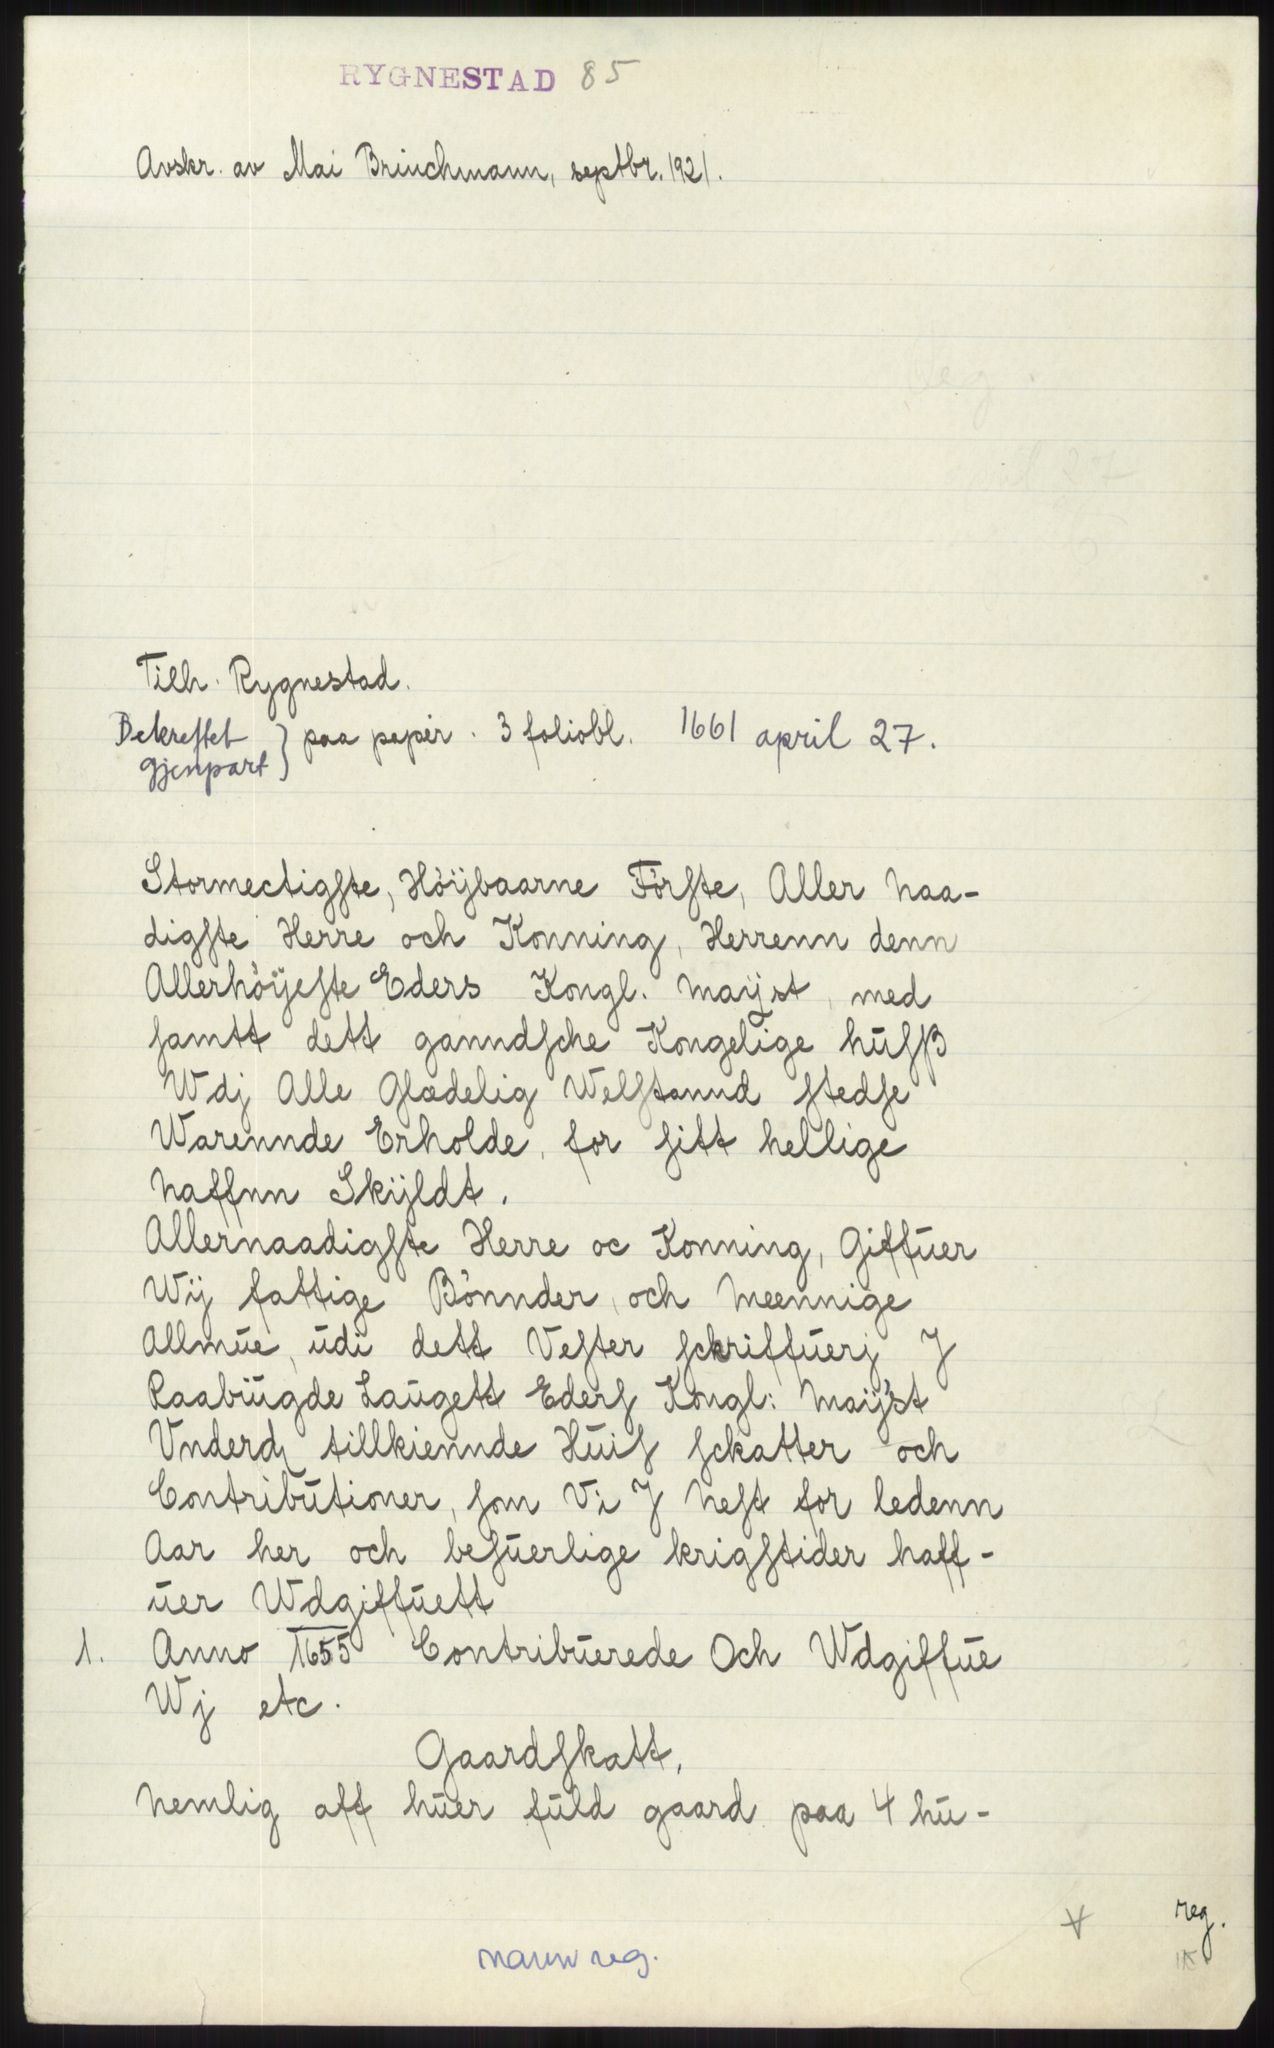 RYGNESTAD 85
Avskr. av Mai Brinchmann, septbr. 1921.
Tilh. Rygnestad.
Bekreftet gjenpart } paa papir. 3 foliobl. 1661 april 27.
Stormectigſte, Höÿbaarne Förſte, Aller Naa-
digſte Herre och Konning, Herrenn denn
Allerhöÿeſte Eders Kongl. Maÿst, med
ſamtt dett ganndſche Kongelige hüſſβ
Wdj Alle Glædelig Welſtannd ſtedſe
Warennde Erholde, for ſitt hellige
Naffnn Skÿldt.
Allernaadigſte Herre oc Konning, Giffüer
Wÿ fattige Bönnder, och Meennige
Allmüe, üdi dett Veſter ſckriffüerj J
Raabÿgde Laügett Ederſ Kongl: Maÿst
Vnderdj tillkiennde Hüiſ ſckatter och
Contribütioner, ſom Vi J Neſt for ledenn
Aar her och beſüerlige krigſtider haff-
üer Wdgiffüett
1. Anno 1655 Contribüerede Och Wdgiffüe
Wj etc.
Gaardſkatt,
Nemlig aff hüer füld gaard paa 4 hü-
reg.
navnreg.